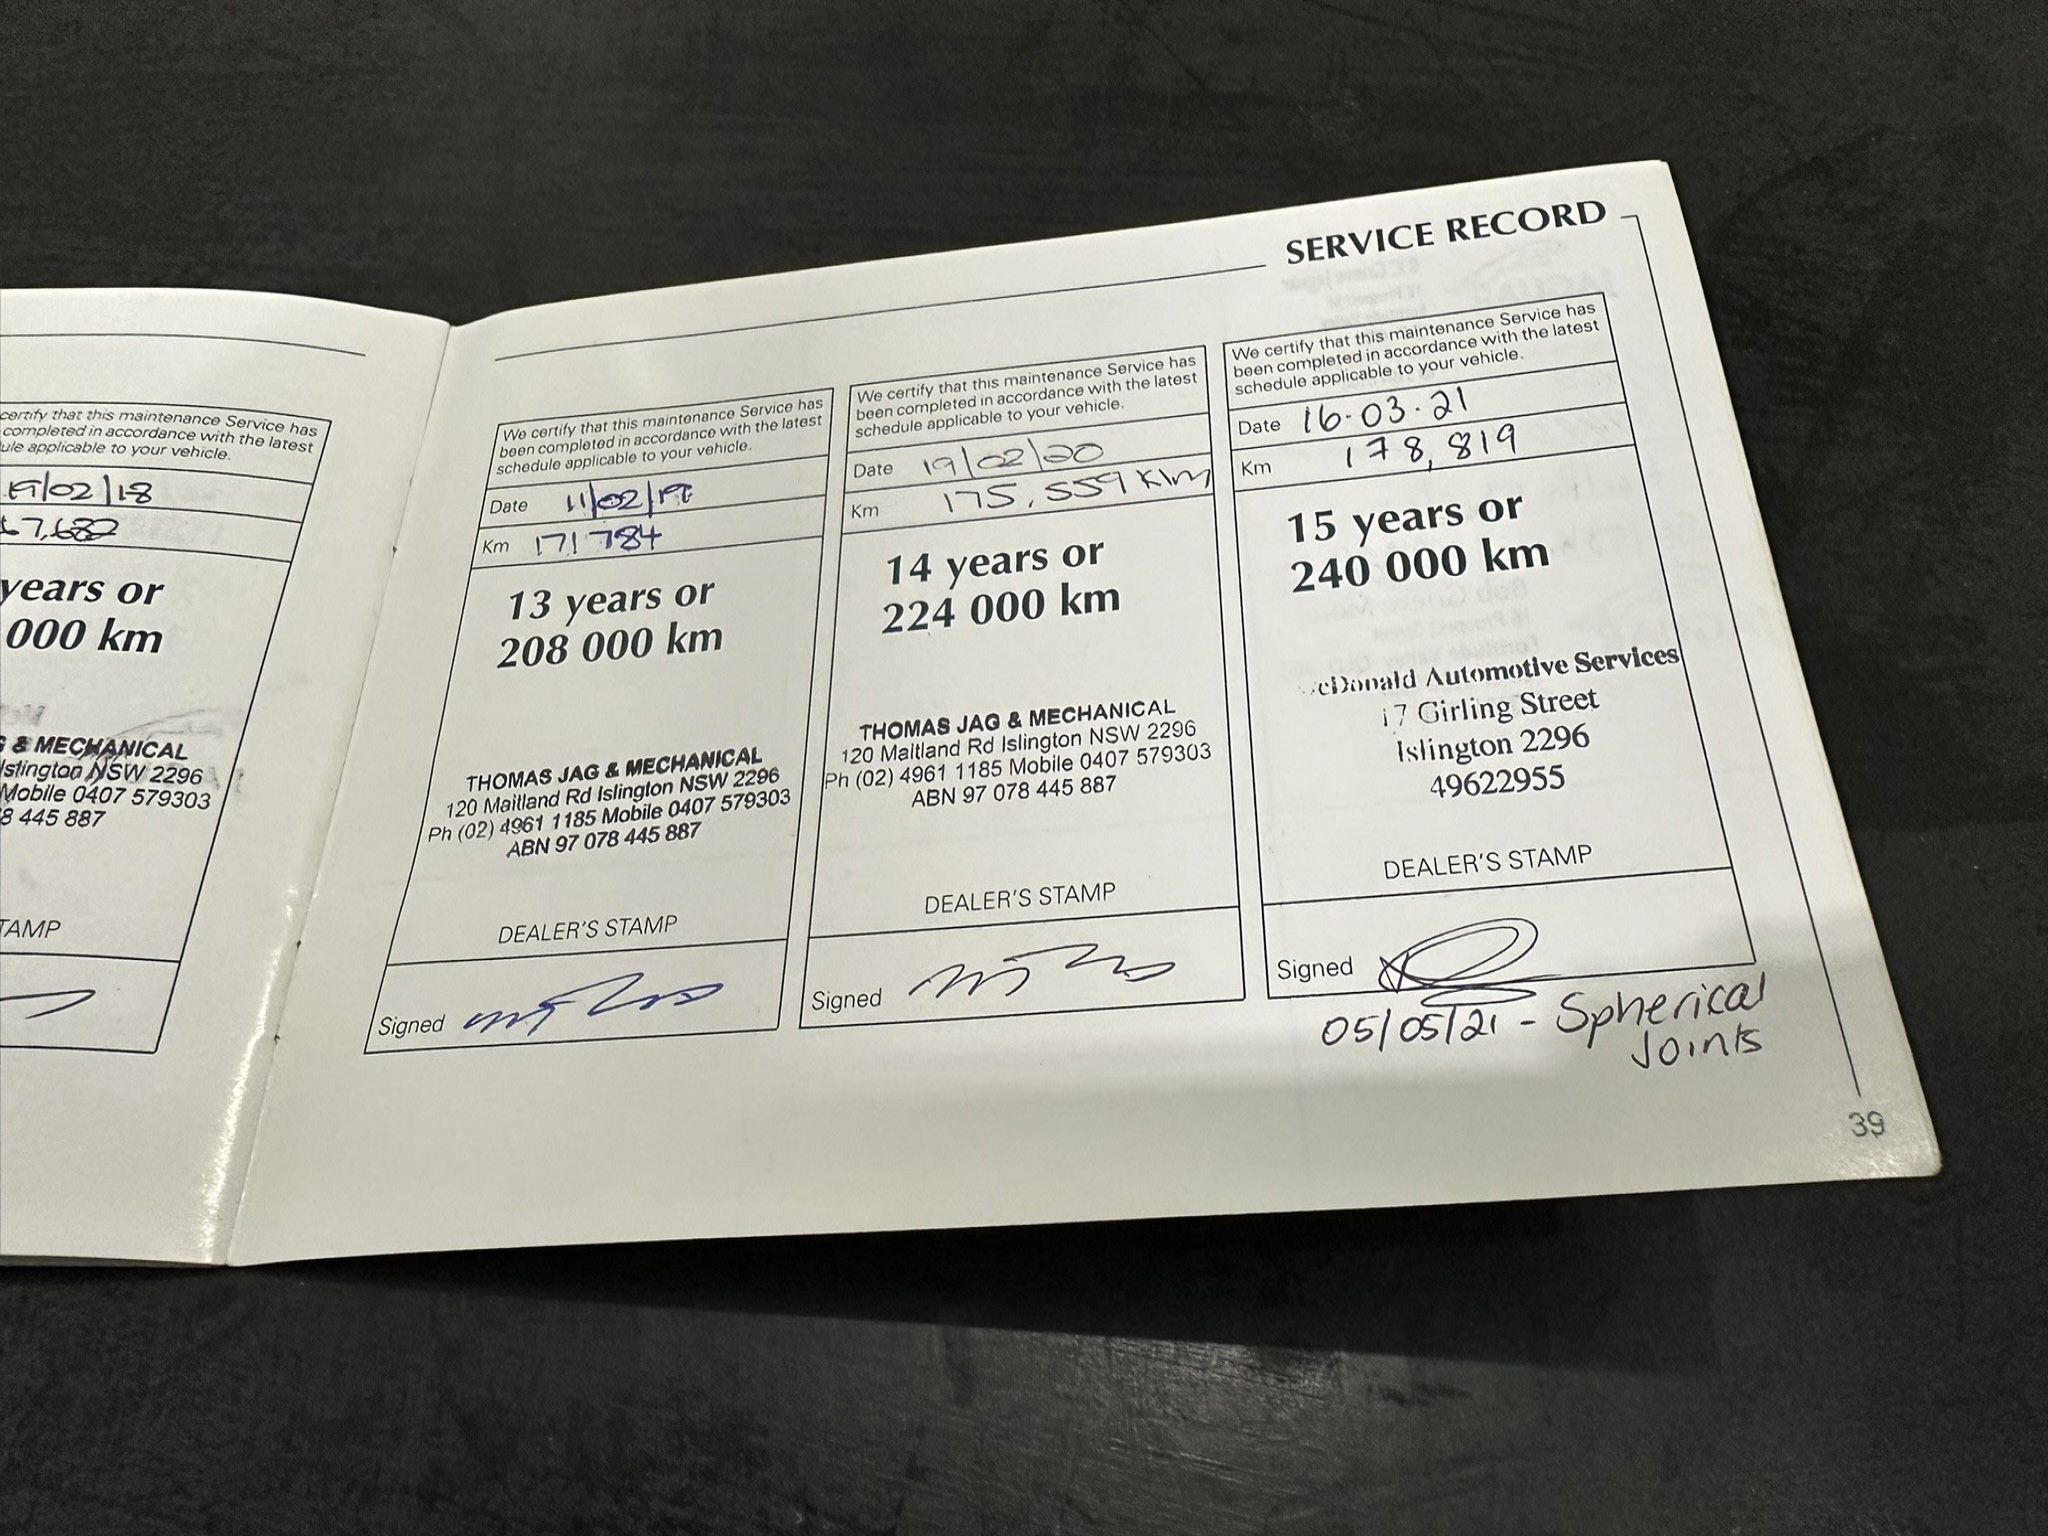 certify that this maintenance Service has
completed in accordance with the latest
applicable to your vehicle.
19/02/18
years or
000 km
& MECHANICAL
NSW 2296
Mobile 0407 579303
445 887
SERVICE RECORD
We certify that this maintenance Service has
been completed in accordance with the latest
schedule applicable to your vehicle.
Date 11/02/19
Km 171 784
13 years or
208 000 km
THOMAS JAG & MECHANICAL
120 Maitland Rd Islington NSW 2296
Ph (02) 4961 1185 Mobile 0407 579303
ABN 97 078 445 887
DEALER'S STAMP
Signed
We certify that this maintenance Service has
been completed in accordance with the latest
schedule applicable to your vehicle.
Date 19/02/20
Km 175,559 Klm
14 years or
224 000 km
THOMAS JAG & MECHANICAL
120 Maitland Rd Islington NSW 2296
Ph (02) 4961 1185 Mobile 0407 579303
ABN 97 078 445 887
DEALER'S STAMP
Signed
We certify that this maintenance Service has
been completed in accordance with the latest
schedule applicable to your vehicle.
Date 16.03.21
Km 178,819
15 years or
240 000 km
cDonald Automotive Services
17 Girling Street
Islington 2296
49622955
DEALER'S STAMP
Signed
05/05/21 - Spherical
Joints
39